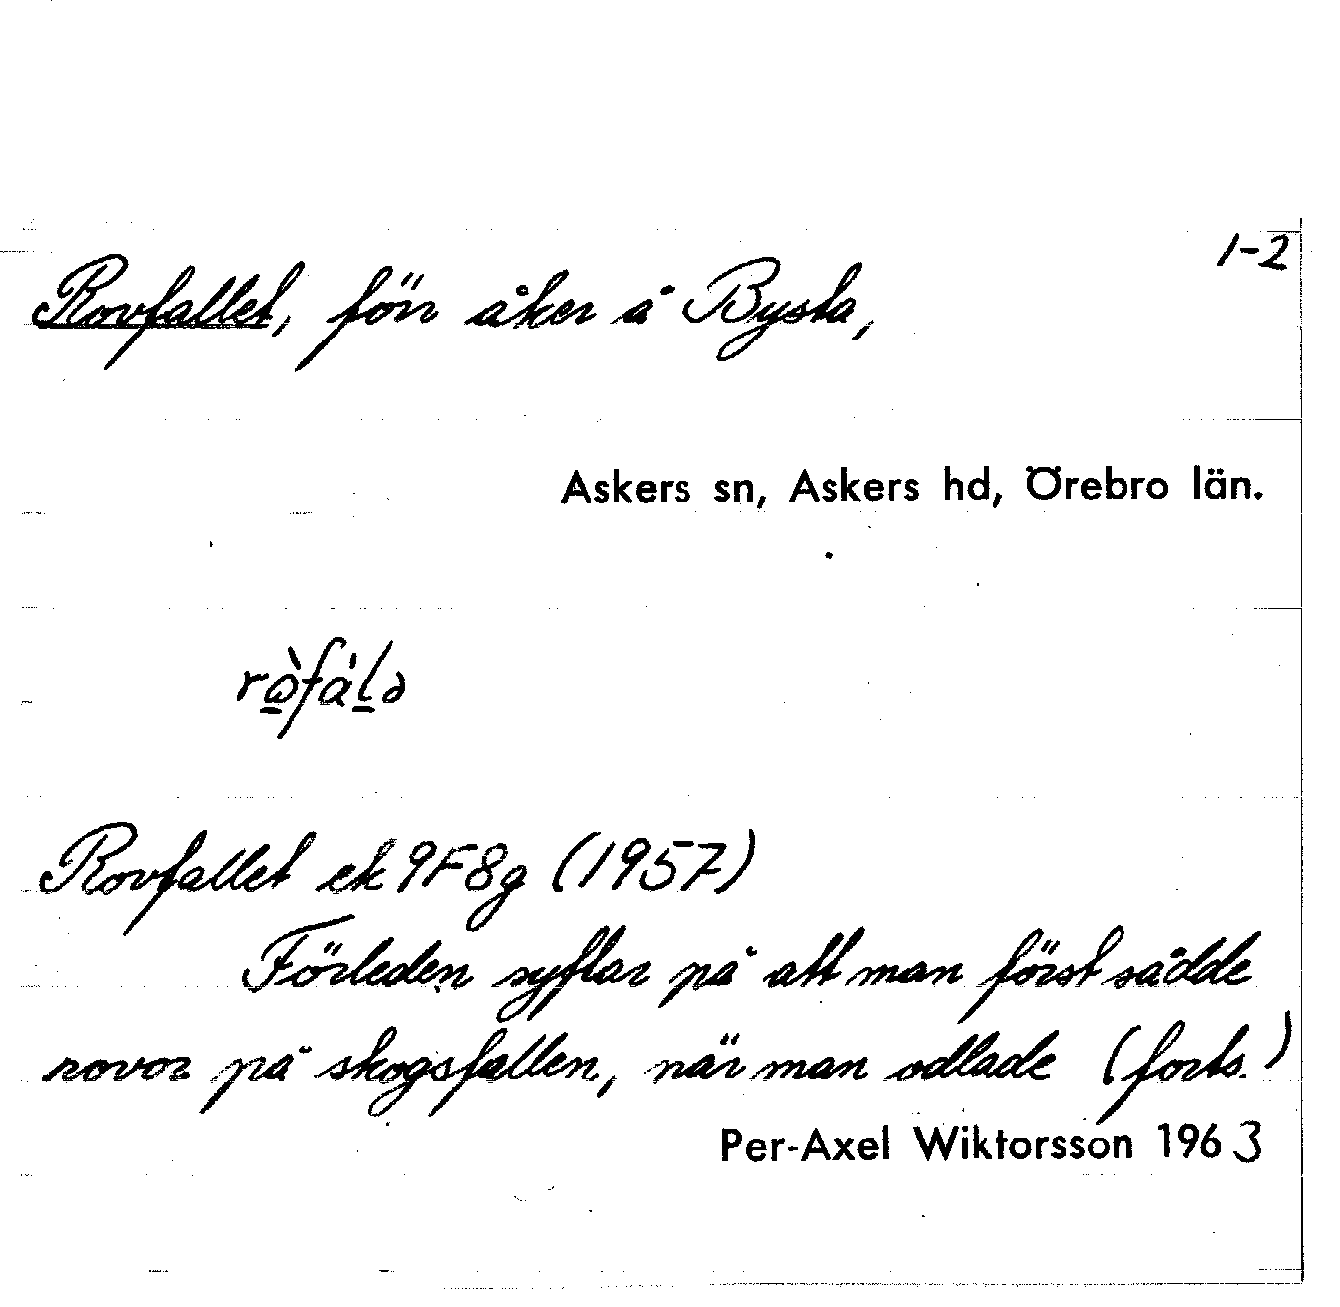 1-2
Rovfallet, förr åker å Bysta,
Askers sn, Askers hd, Örebro län.
rò̱fáḻə
Rovfallet ek 9F8g (1957)
Förleden syftar på att man först sådde
rovor på skogsfallen, när man odlade (forts.)
Per-Axel Wiktorsson 1963